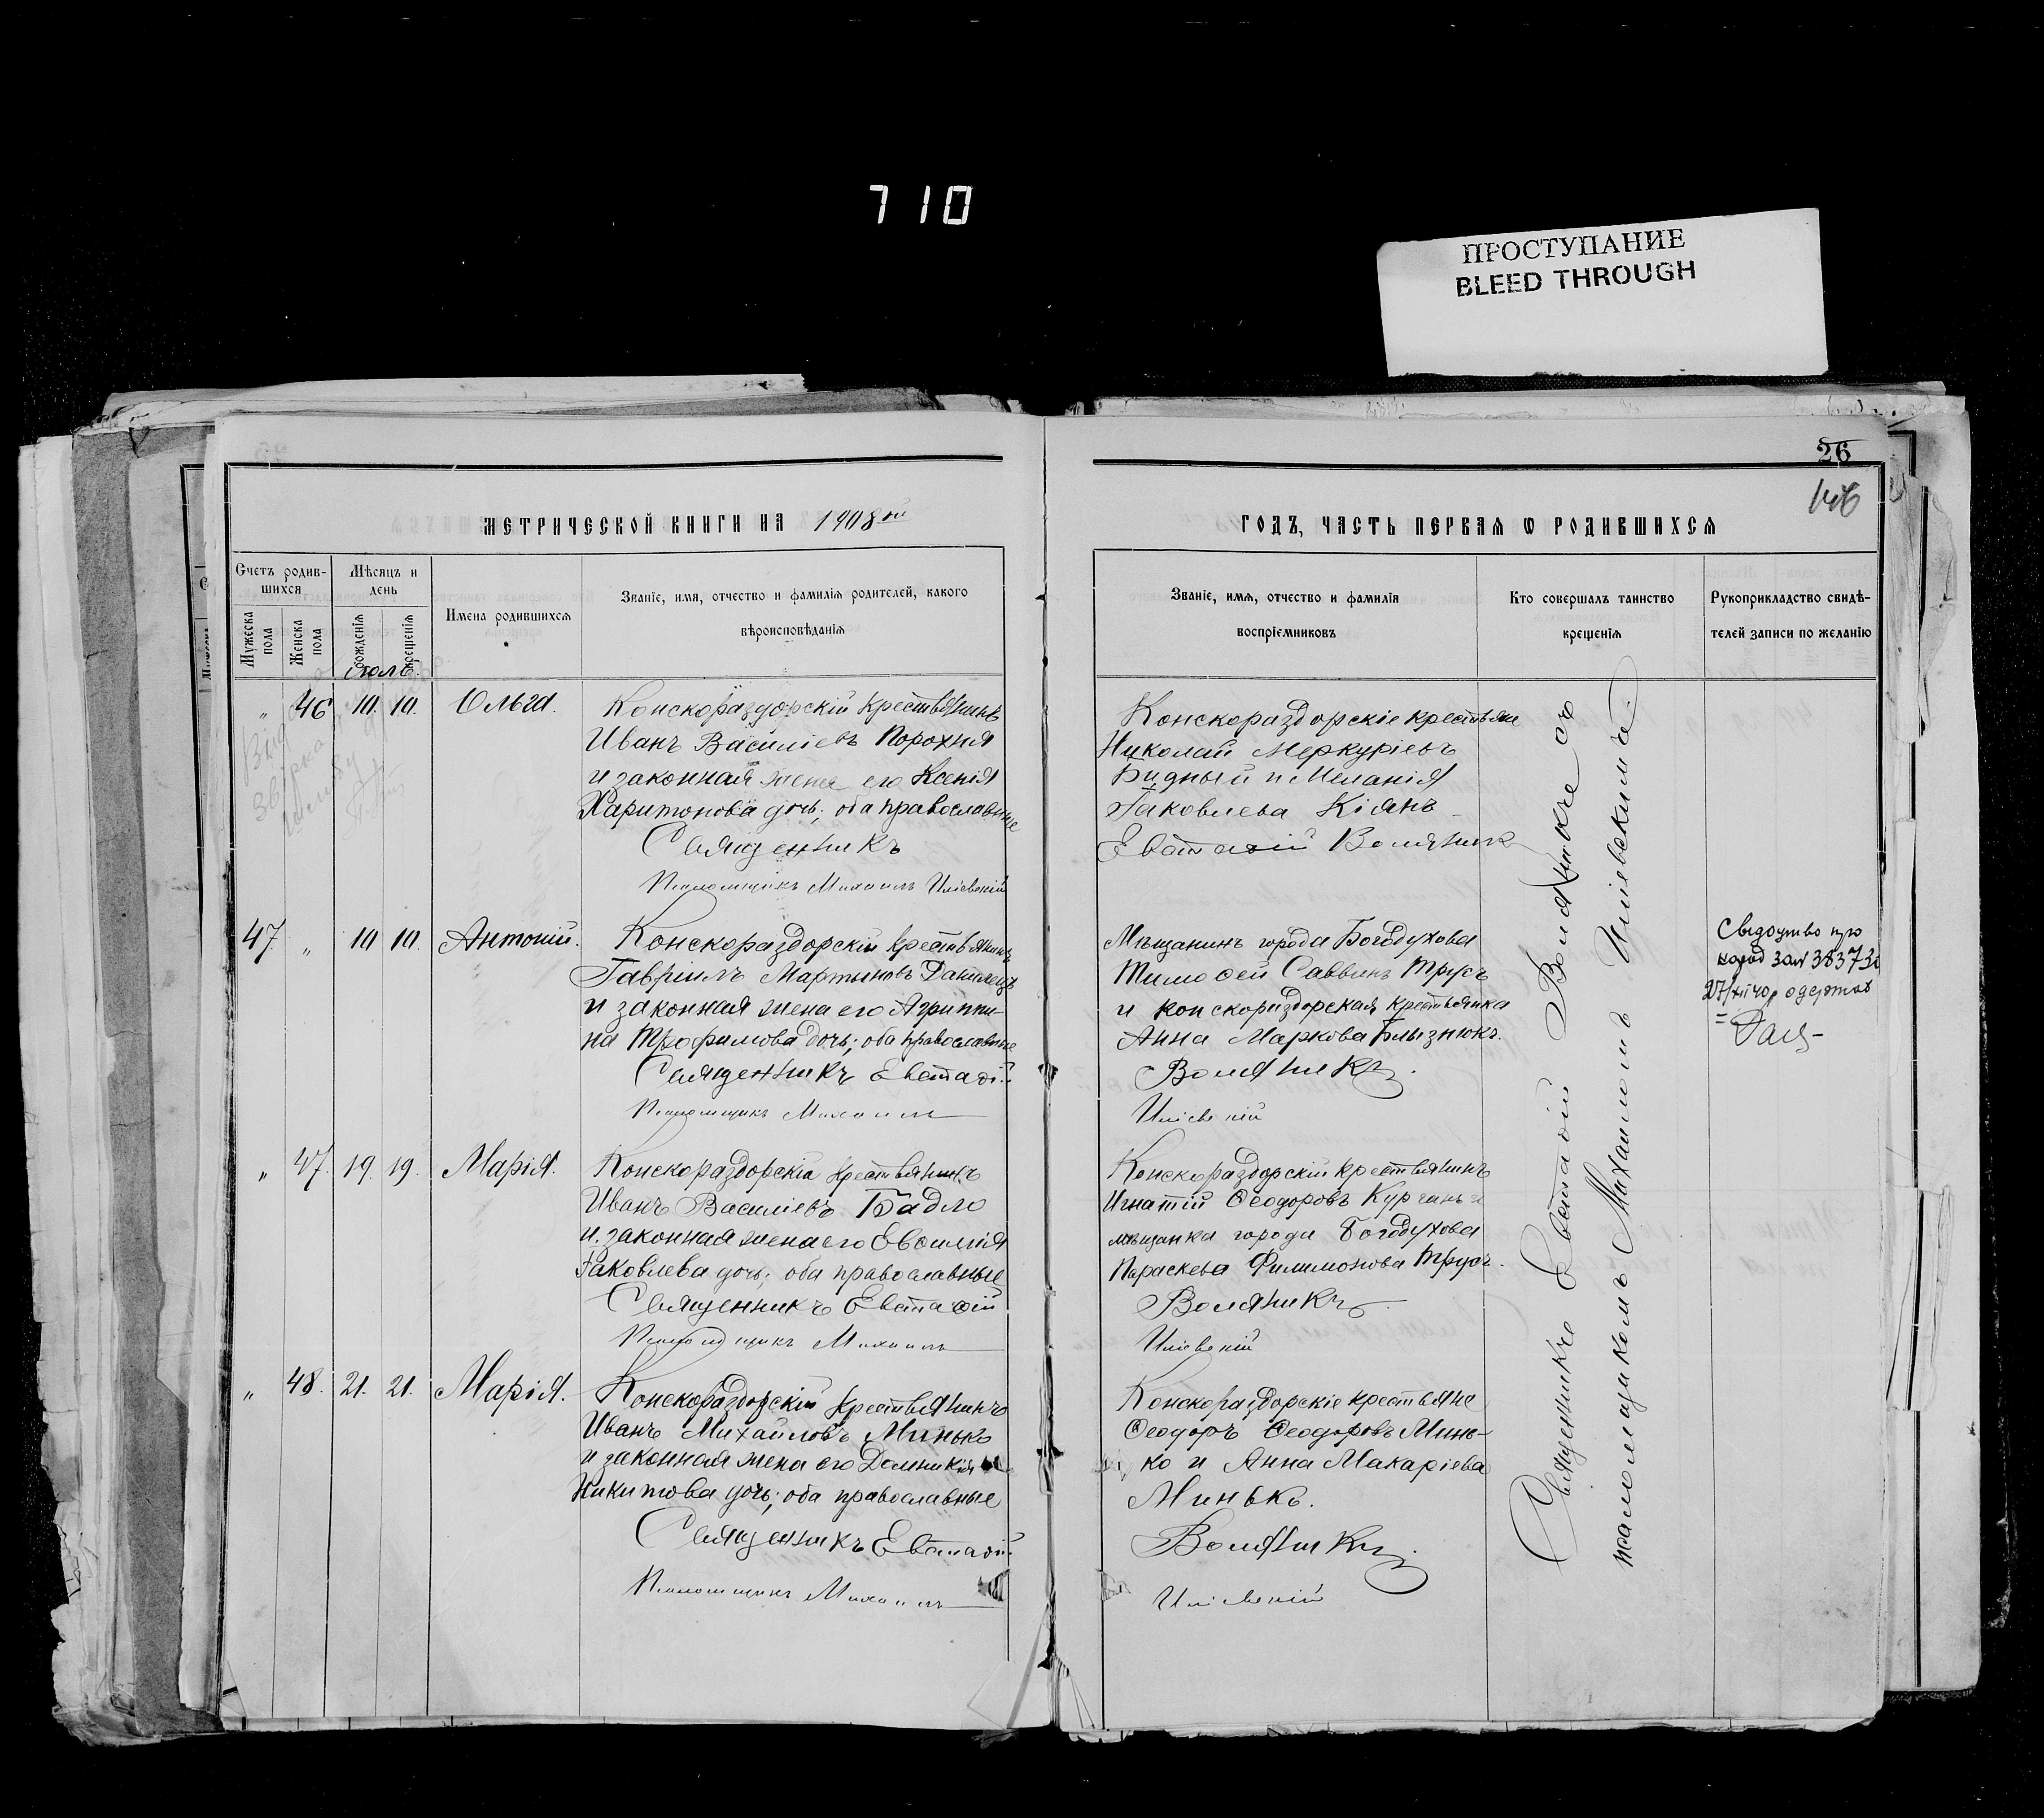 710
ПРОСТУПАНИЕ
BLEED THROUGH
26
146
МЕТРИЧЕСКОЙ КНИГИ НА 1908ой
ГОДЪ, ЧАСТЬ ПЕРВАЯ Ѡ РОДИВШИХСЯ
Счетъ родив-
шихся
Мѣсяцъ и
день
Мужеска
пола
Женска
пола
рожденія
крещенія
Имена родившихся
Званіе, имя, отчество и фамилія родителей, какого
вѣроисповѣданія
Званіе, имя, отчество и фамилія
воспріемниковъ
Кто совершалъ таинство
крещенія
Рукоприкладство свидѣ-
телей записи по желанію
Іюль.
„ 46 10. 10. Ольга.
Конскораздорскій крестьянинъ
Иванъ Василіевъ Порохня
и законная жена его Ксенія
Харитонова дочь; оба православные
Священникъ
Псаломщикъ Михаилъ
Конскораздорскіе крестьяне
Николай Меркуріевъ
Бидный и Меланія
Іаковлева Кіянъ
Евстаѳій Воляникъ
47. „ 10 10. Антоній.
Конскораздорскій крестьянинъ
Гавріилъ Мартыновъ
и законная жена его Агриппи-
на Трофимова дочь; оба православные
Священникъ Евстаѳій
Псаломщикъ Михаилъ
Мѣщанинъ города Богодухова
Тимоѳей Саввинъ Трусъ
и конскораздорская крестьянка
Анна Маркова Близнюкъ.
Воляникъ.
Свідоцтво про
27/XII 40р одержав
„ 47. 19. 19. Марія.
Конскораздорскій крестьянинъ
Иванъ Василіевъ Бадло
и законная жена его Евѳимія
Іаковлева дочь; оба православные
Священникъ Евстаѳій
Псаломщикъ Михаилъ
Конскораздорскій крестьянинъ
Игнатій Ѳеодоровъ Курчанъ и
мѣщанка города Богодухова
Параскева Филимонова Трусъ.
Воляникъ.
„ 48. 21. 21. Марія.
Конскораздорскій крестьянинъ
Иванъ Михайловъ Минько
и законная жена его Домникія
Никитова дочь; оба православные
Священникъ Евстаѳій
Псаломщикъ Михаилъ
Конскораздорскіе крестьяне
Ѳеодоръ Ѳеодоровъ Минь-
ко и Анна Макаріева
Минько.
Воляникъ.
Священникъ Евстаѳій Воляникъ съ
псаломщикомъ Михаиломъ